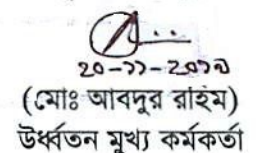 ২০-১১-২০১৯
(মোঃ আবদুর রহিম)
উর্ধ্বতন মুখ্য কর্মকর্তা